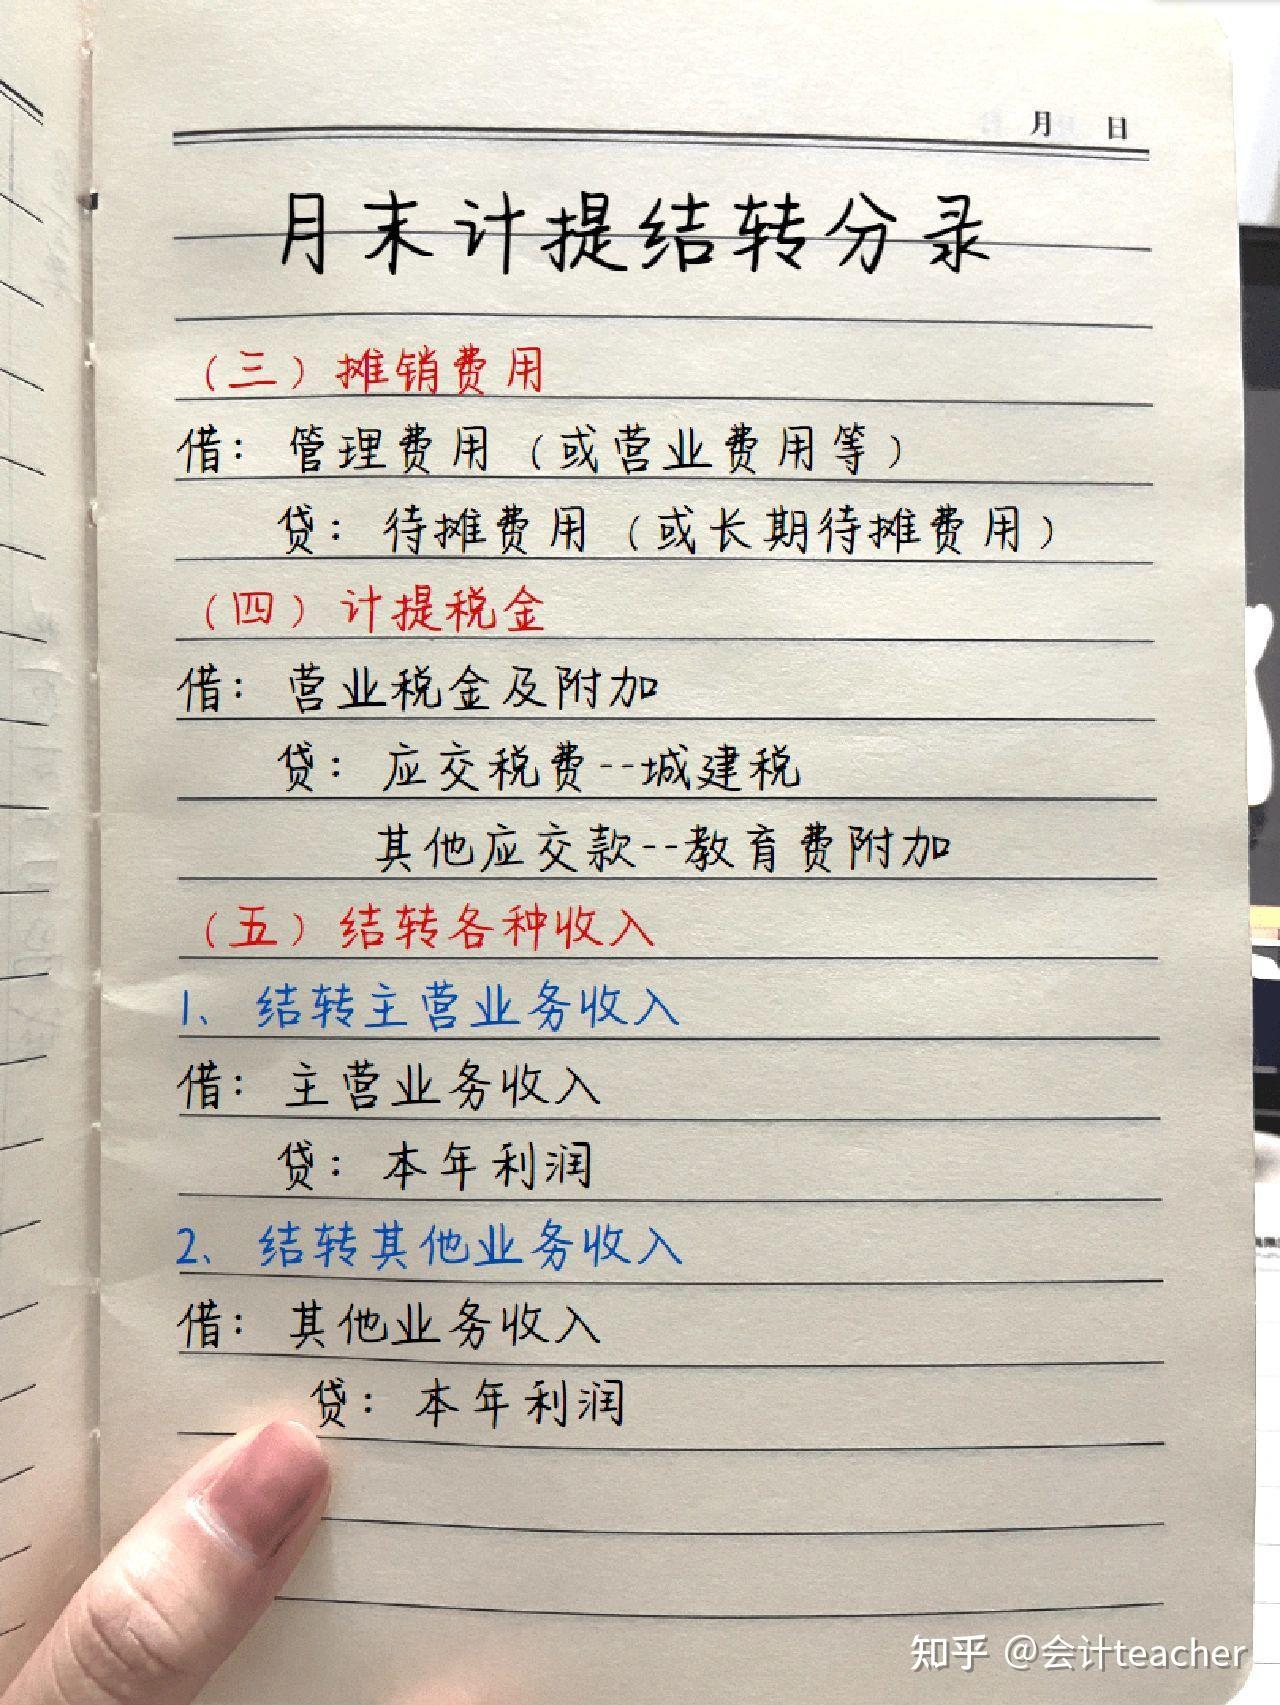 月 日
月末计提结转分录
（三）摊销费用
借：管理费用（或营业费用等）
贷：待摊费用（或长期待摊费用）
（四）计提税金
借：营业税金及附加
贷：应交税费--城建税
其他应交款--教育费附加
（五）结转各种收入
1、结转主营业务收入
借：主营业务收入
贷：本年利润
2、结转其他业务收入
借：其他业务收入
贷：本年利润
知乎 @会计teacher